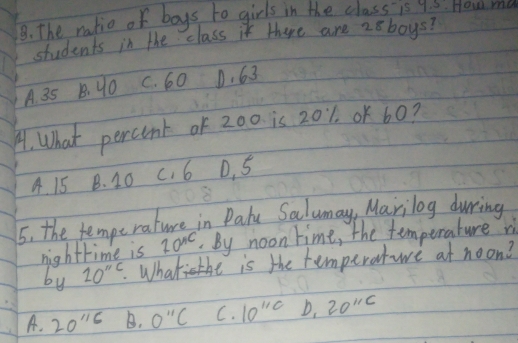 3. The ratio of boys to girls in the class is 4:5. How
students in the class if there are 28 boys?
A. 35 B. 40 C. 60 D. 63
4. What percent of 200 is 20% of 60?
A. 15 B. 10 C. 6 D. 5
5. The temperature in Datu Salumay, Marilog during
nighttime is 10"C. By noontime, the temperature
by 20"C. What is the temperature at noon?
A. 20"C B. 0"C C. 10"C D. 20"C